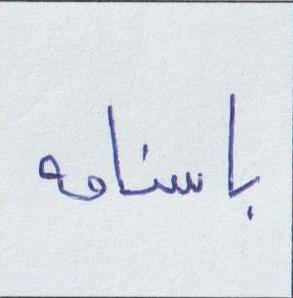 باسنامه